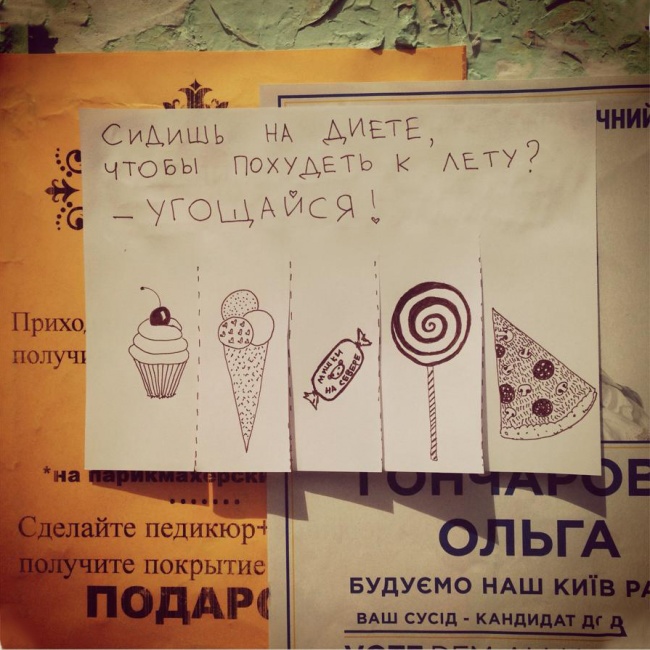 СИДИШЬ НА ДИЕТЕ,
ЧТОБЫ ПОХУДЕТЬ К ЛЕТУ?
– УГОЩАЙСЯ!
МИШКИ
НА СЕВЕРЕ
получи
*на парикмахерски
Сделайте педикюр+
получите покрытие
ОЛЬГА
БУДУЄМО НАШ КИЇВ
ВАШ СУСІД - КАНДИДАТ